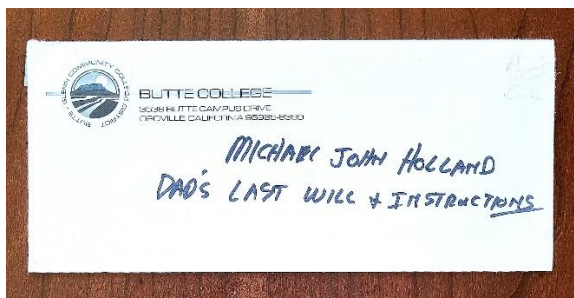 BUTTE - GLENN COMMUNITY COLLEGE DISTRICT
BUTTE COLLEGE
3536 BUTTE CAMPUS DRIVE
OROVILLE CALIFORNIA 95965-8399
MICHAEL JOHN HOLLAND
DAD'S LAST WILL & INSTRUCTIONS